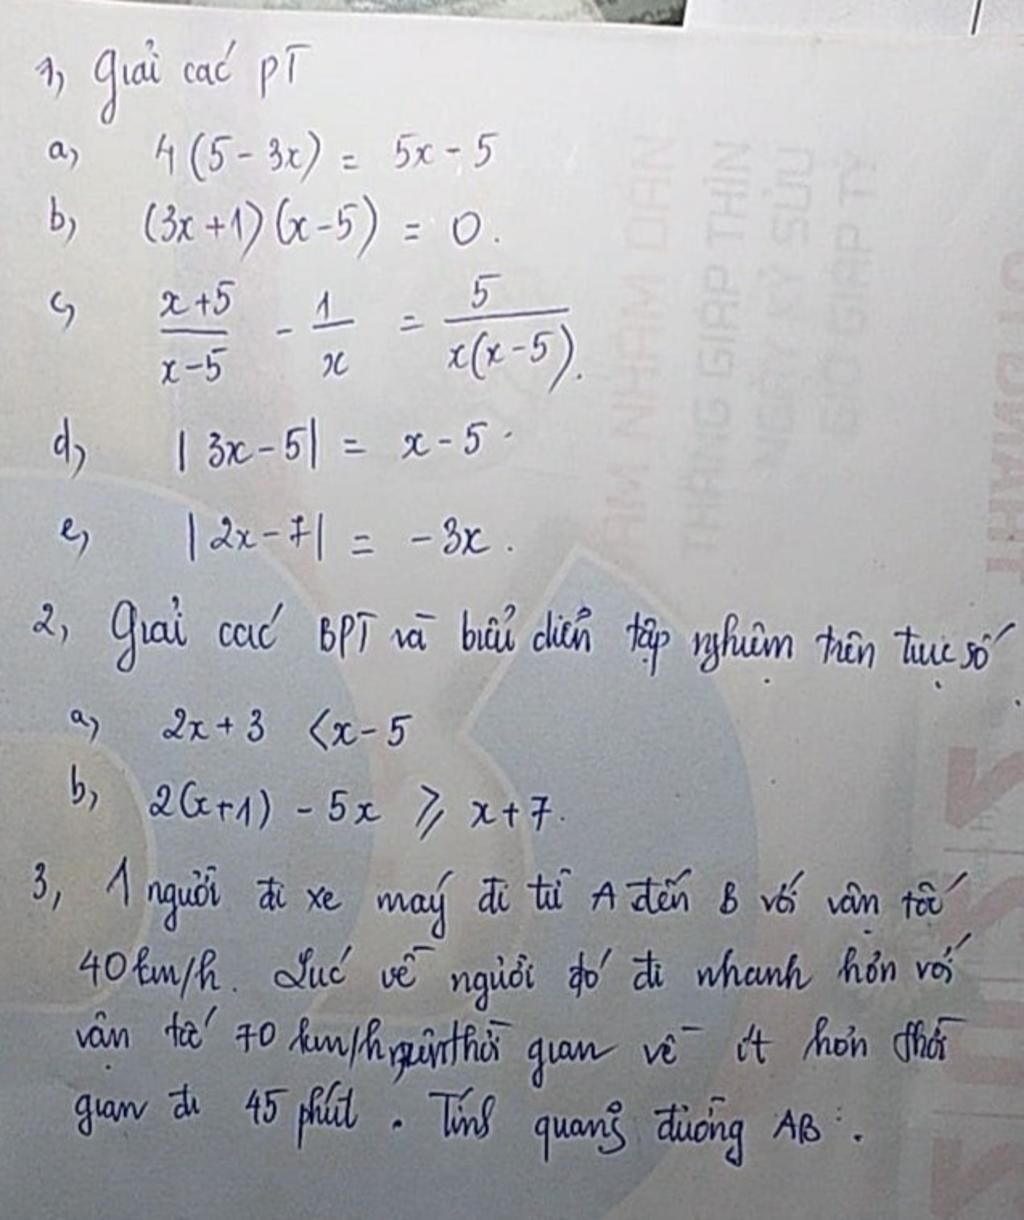 1, Giải các PT
a, 4(5 - 3x) = 5x - 5
b, (3x + 1)(x - 5) = 0.
c, \frac{x+5}{x-5} - \frac{1}{x} = \frac{5}{x(x-5)}.
d, |3x - 5| = x - 5.
e, |2x - 7| = -3x.
2, Giải các BPT và biểu diễn tập nghiệm trên trục số
a, 2x + 3 < x - 5
b, 2(x+1) - 5x ⩾ x + 7.
3, 1 người đi xe máy đi từ A đến B với vận tốc
40 km/h. Lúc về người đó đi nhanh hơn với
vận tốc 70 km/h thời gian về ít hơn thời
gian đi 45 phút. Tính quãng đường AB.
NĂM NHÂM DẦN
THÁNG GIÁP THÌN
NGÀY KỶ SỬU
GIỜ GIÁP TÝ
THÁNG